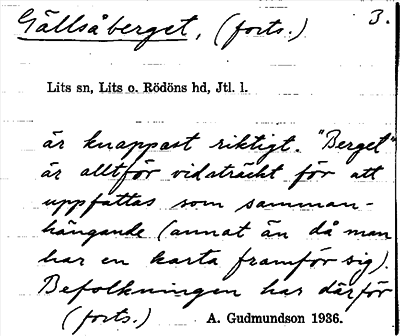 Gällsåberget, (forts.) 3.
Lits sn, Lits o. Rödöns hd, Jtl. l.
är knappast riktigt. "Berget"
är alltför vidsträckt för att
uppfattas som samman-
hängande (annat än då man
har en karta framför sig).
Befolkningen har därför
(forts.) A. Gudmundson 1936.